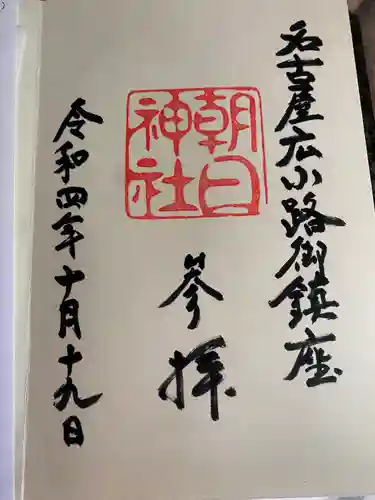 名古屋広小路御鎮座
朝日神社
参拝
令和四年十月十九日